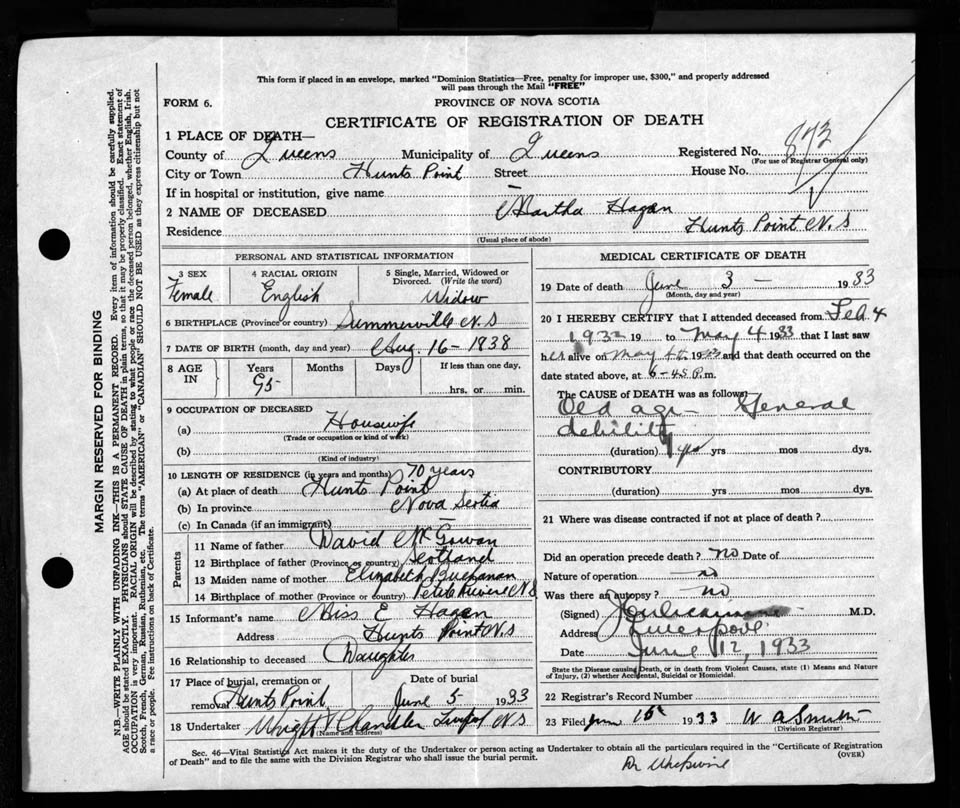 This form if placed in an envelope, marked "Dominion Statistics—Free, penalty for improper use, $300," and properly addressed
will pass through the Mail "FREE"
FORM 6.
PROVINCE OF NOVA SCOTIA
CERTIFICATE OF REGISTRATION OF DEATH
873
1 PLACE OF DEATH—
County of Queens Municipality of Queens Registered No.
(For use of Registrar General only)
City or Town Hunts Point Street House No.
If in hospital or institution, give name —
2 NAME OF DECEASED Martha Hagan
Residence Hunts Point N.S
(Usual place of abode)
PERSONAL AND STATISTICAL INFORMATION
3 SEX 4 RACIAL ORIGIN 5 Single, Married, Widowed or
Divorced. (Write the word)
Female English Widow
6 BIRTHPLACE (Province or country) Summerville N.S
7 DATE OF BIRTH (month, day and year) Aug. 16 - 1838
8 AGE IN Years Months Days If less than one day,
95
hrs. or min.
9 OCCUPATION OF DECEASED
(a) Housewife
(Trade or occupation or kind of work)
(b)
(Kind of industry)
10 LENGTH OF RESIDENCE (in years and months) 70 years
(a) At place of death Hunts Point
(b) In province Nova Scotia
(c) In Canada (if an immigrant) —
Parents
11 Name of father David McGowan
12 Birthplace of father (Province or country) Scotland
13 Maiden name of mother Elizabeth Buchanan
14 Birthplace of mother (Province or country) Petite Riviere N.S
15 Informant's name Miss E Hagen
Address Hunts Point N.S
16 Relationship to deceased Daughter
17 Place of burial, cremation or Date of burial
removal Hunts Point June 5 1933
18 Undertaker Wright Chandler N.S
(Name and address)
MEDICAL CERTIFICATE OF DEATH
19 Date of death June 3 — 1933
(Month, day and year)
20 I HEREBY CERTIFY that I attended deceased from Feb. 4
1932 19 to May 4 1933 that I last saw
her alive on May 4th 1933 and that death occurred on
date stated above, at 6-45 P.m.
The CAUSE of DEATH was as follows:
Old age - General
debility
(duration) 1 yr yrs mos dys.
CONTRIBUTORY
(duration) yrs mos dys.
21 Where was disease contracted if not at place of death?
Did an operation precede death? no Date of
Nature of operation no
Was there an autopsy? no
(Signed) M.D.
Address Liverpool
Date June 12, 1933
State the Disease causing Death, or in death from Violent Causes, state (1) Means and Nature
of Injury, (2) whether Accidental, Suicidal or Homicidal.
22 Registrar's Record Number
23 Filed June 15th 1933 W A Smith
(Division Registrar)
Sec. 46—Vital Statistics Act makes it the duty of the Undertaker or person acting as Undertaker to obtain all the particulars required in the "Certificate of Registration
of Death" and to file the same with the Division Registrar who shall issue the burial permit.
(OVER)
Dr
MARGIN RESERVED FOR BINDING
N.B.—WRITE PLAINLY WITH UNFADING INK—THIS IS A PERMANENT RECORD. Every item of information should be carefully supplied.
AGE should be stated EXACTLY. PHYSICIANS should STATE CAUSE OF DEATH in plain terms, so that it may be properly classified. Exact statement of
OCCUPATION is very important. RACIAL ORIGIN will be described by stating to what people or race the deceased person belonged, whether English, Irish,
Scotch, French, German, Russian, Ruthenian, etc. The terms "AMERICAN" or "CANADIAN" SHOULD NOT BE USED as they express citizenship but not
a race or people. Fee instructions on back of Certificate.